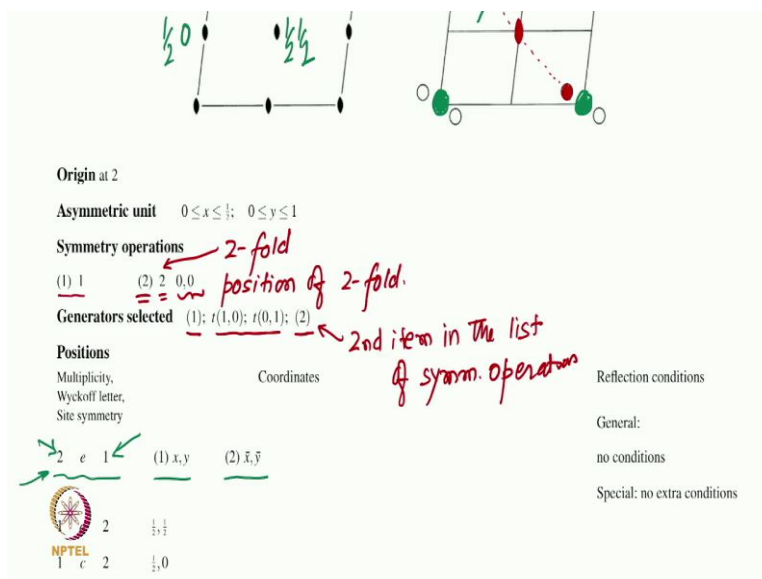 ½0 ½½
O O O
Origin at 2
Asymmetric unit 0≤x≤½; 0≤y≤1
Symmetry operations 2-fold
(1) 1 (2) 2 0,0 position of 2-fold.
Generators selected (1); t(1,0); t(0,1); (2)
2nd item in the list
of symm. operations
Positions
Multiplicity,
Wyckoff letter,
Site symmetry
Coordinates
Reflection conditions
General:
2 e 1 (1) x,y (2) x̄,ȳ no conditions
Special: no extra conditions
2 ½,½
NPTEL
1 c 2 ½,0